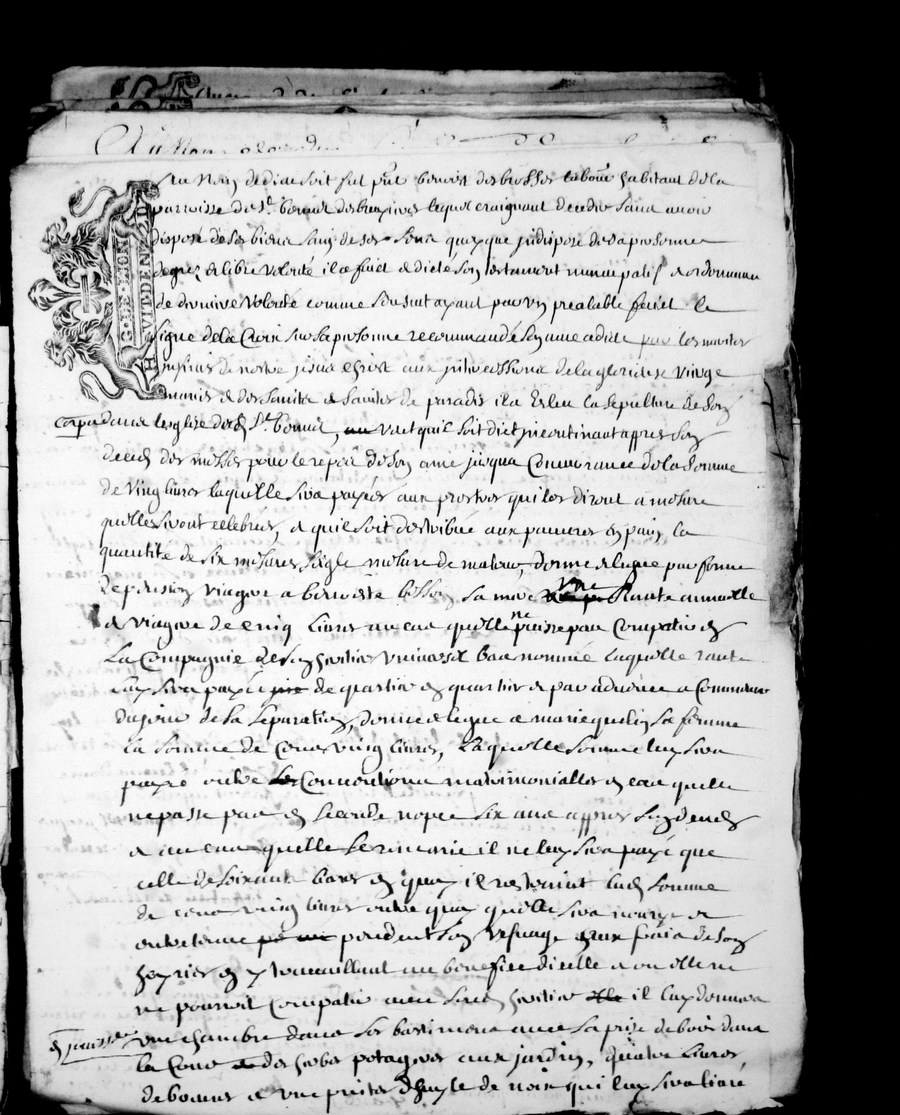 Au Nom de dieu soit fait pnt benoist desbrosses labour habitant de la
parroisse de St bonnet des bruyeres lequel craignant deceder sans avoir
dispose de ses biens sain de ses sens quoyque indispose de sa personne
de grez & libre volonté il a faict & dicté son testament nuncupatif & ordonnance
de derniere volonté comme sensuit ayant par un prealable faict le
signe de la Croix sur sa personne recommande son ame a dieu par les merites
infinis de nostre jesus Christ aux intercessions de la glorieuse vierge
marie & des saints & saintes de paradis il a esleu la sepulture de son
corps dans lesglise dud St bonnet, veut quil soit dict incontinant appres son
deces des messes pour le repos de son ame jusqua Concurance de la somme
de vingt livres laquelle sera payée aux prestres qui les diront a mesure
quelles seront cellebrées, & quil soit distribué aux pauvres en pain la
quantité de six mesures seigle mesure de matour, donne & legue par forme
de pension viagere a benoiste sa mere une rante annuelle
& viagere de cinq livres au cas quelle ne puisse pas Compatir en
La Compagnie de son heritier universel bas nommé laquelle rante
luy sera payée de quartier en quartier & par advance a Commencer
du jour de la separation, donne & legue a marie sa femme
la somme de cens vingt livres, Laquelle somme luy sera
payée outre Conventions matrimonialles en cas quelle
ne passe pas en seconde nopce six ans appres son deces
& au cas quelle se remarie il ne luy sera payé que
celle de soixante livres en quoy il restraint lad somme
de cens vingt livres outre quoy quelle sera nourye &
entretenue pendent son vefvage aux frais de son
heritier en y travaillant au benefice dicelle & ou elle ne
ne pourroit Compatir avec sond heritier il luy donnera
une chambre dans ses bastimens avec sa prize de bois dans
la Cour des herbes potageres aux jardin, quatre livres
de beurre & une d huyle de noix qui luy sera livré